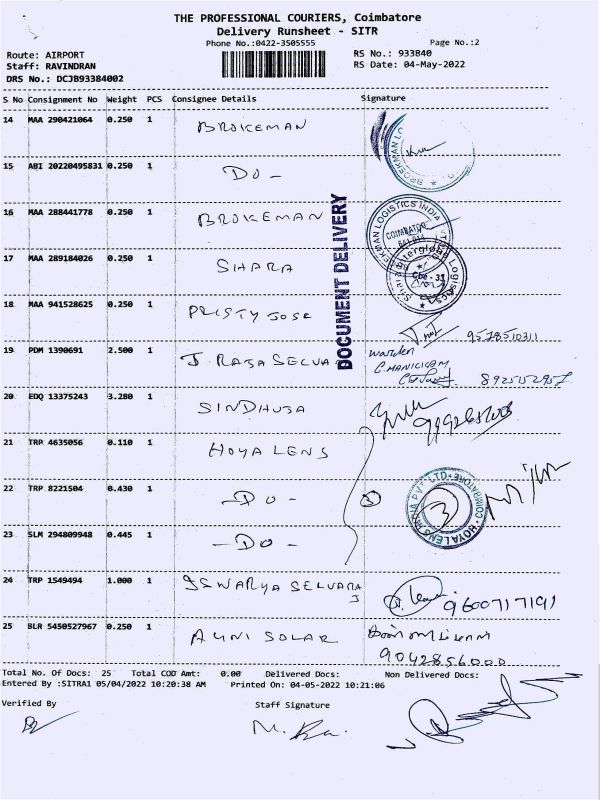 THE PROFESSIONAL COURIERS, Coimbatore
Delivery Runsheet - SITR
Phone No.:0422-3505555
Page No.:2
Route: AIRPORT
RS No.: 933840
Staff: RAVINDRAN
RS Date: 04-May-2022
DRS No.: DCJB93384002
S No Consignment No Weight PCS Consignee Details Signature
14 MAA 290421064 0.250 1 BROKEMAN
15 ABI 20220495831 0.250 1 DO -
16 MAA 288441778 0.250 1 BROKEMAN
17 MAA 289184026 0.250 1 SHARA
18 MAA 941528625 0.250 1 PRISTY JOSE
9578510311
19 PDM 1390691 2.500 1 J. RAJA SELVA
Warden
C. MANICKAM
20 EDQ 13375243 3.280 1 SINDHUJA
21 TRP 4635056 0.110 1 HOYA LENS
22 TRP 8221504 0.430 1 - DO -
3
23 SLM 294809948 0.445 1 - DO -
24 TRP 1549494 1.000 1 ISWARYA SELVARAJ
9600717191
25 BLR 5450527967 0.250 1 AUNI SOLAR
9042856000
DOCUMENT DELIVERY
Total No. Of Docs: 25 Total COD Amt: 0.00 Delivered Docs: Non Delivered Docs:
Entered By :SITRA1 05/04/2022 10:20:38 AM Printed On: 04-05-2022 10:21:06
Verified By
Staff Signature